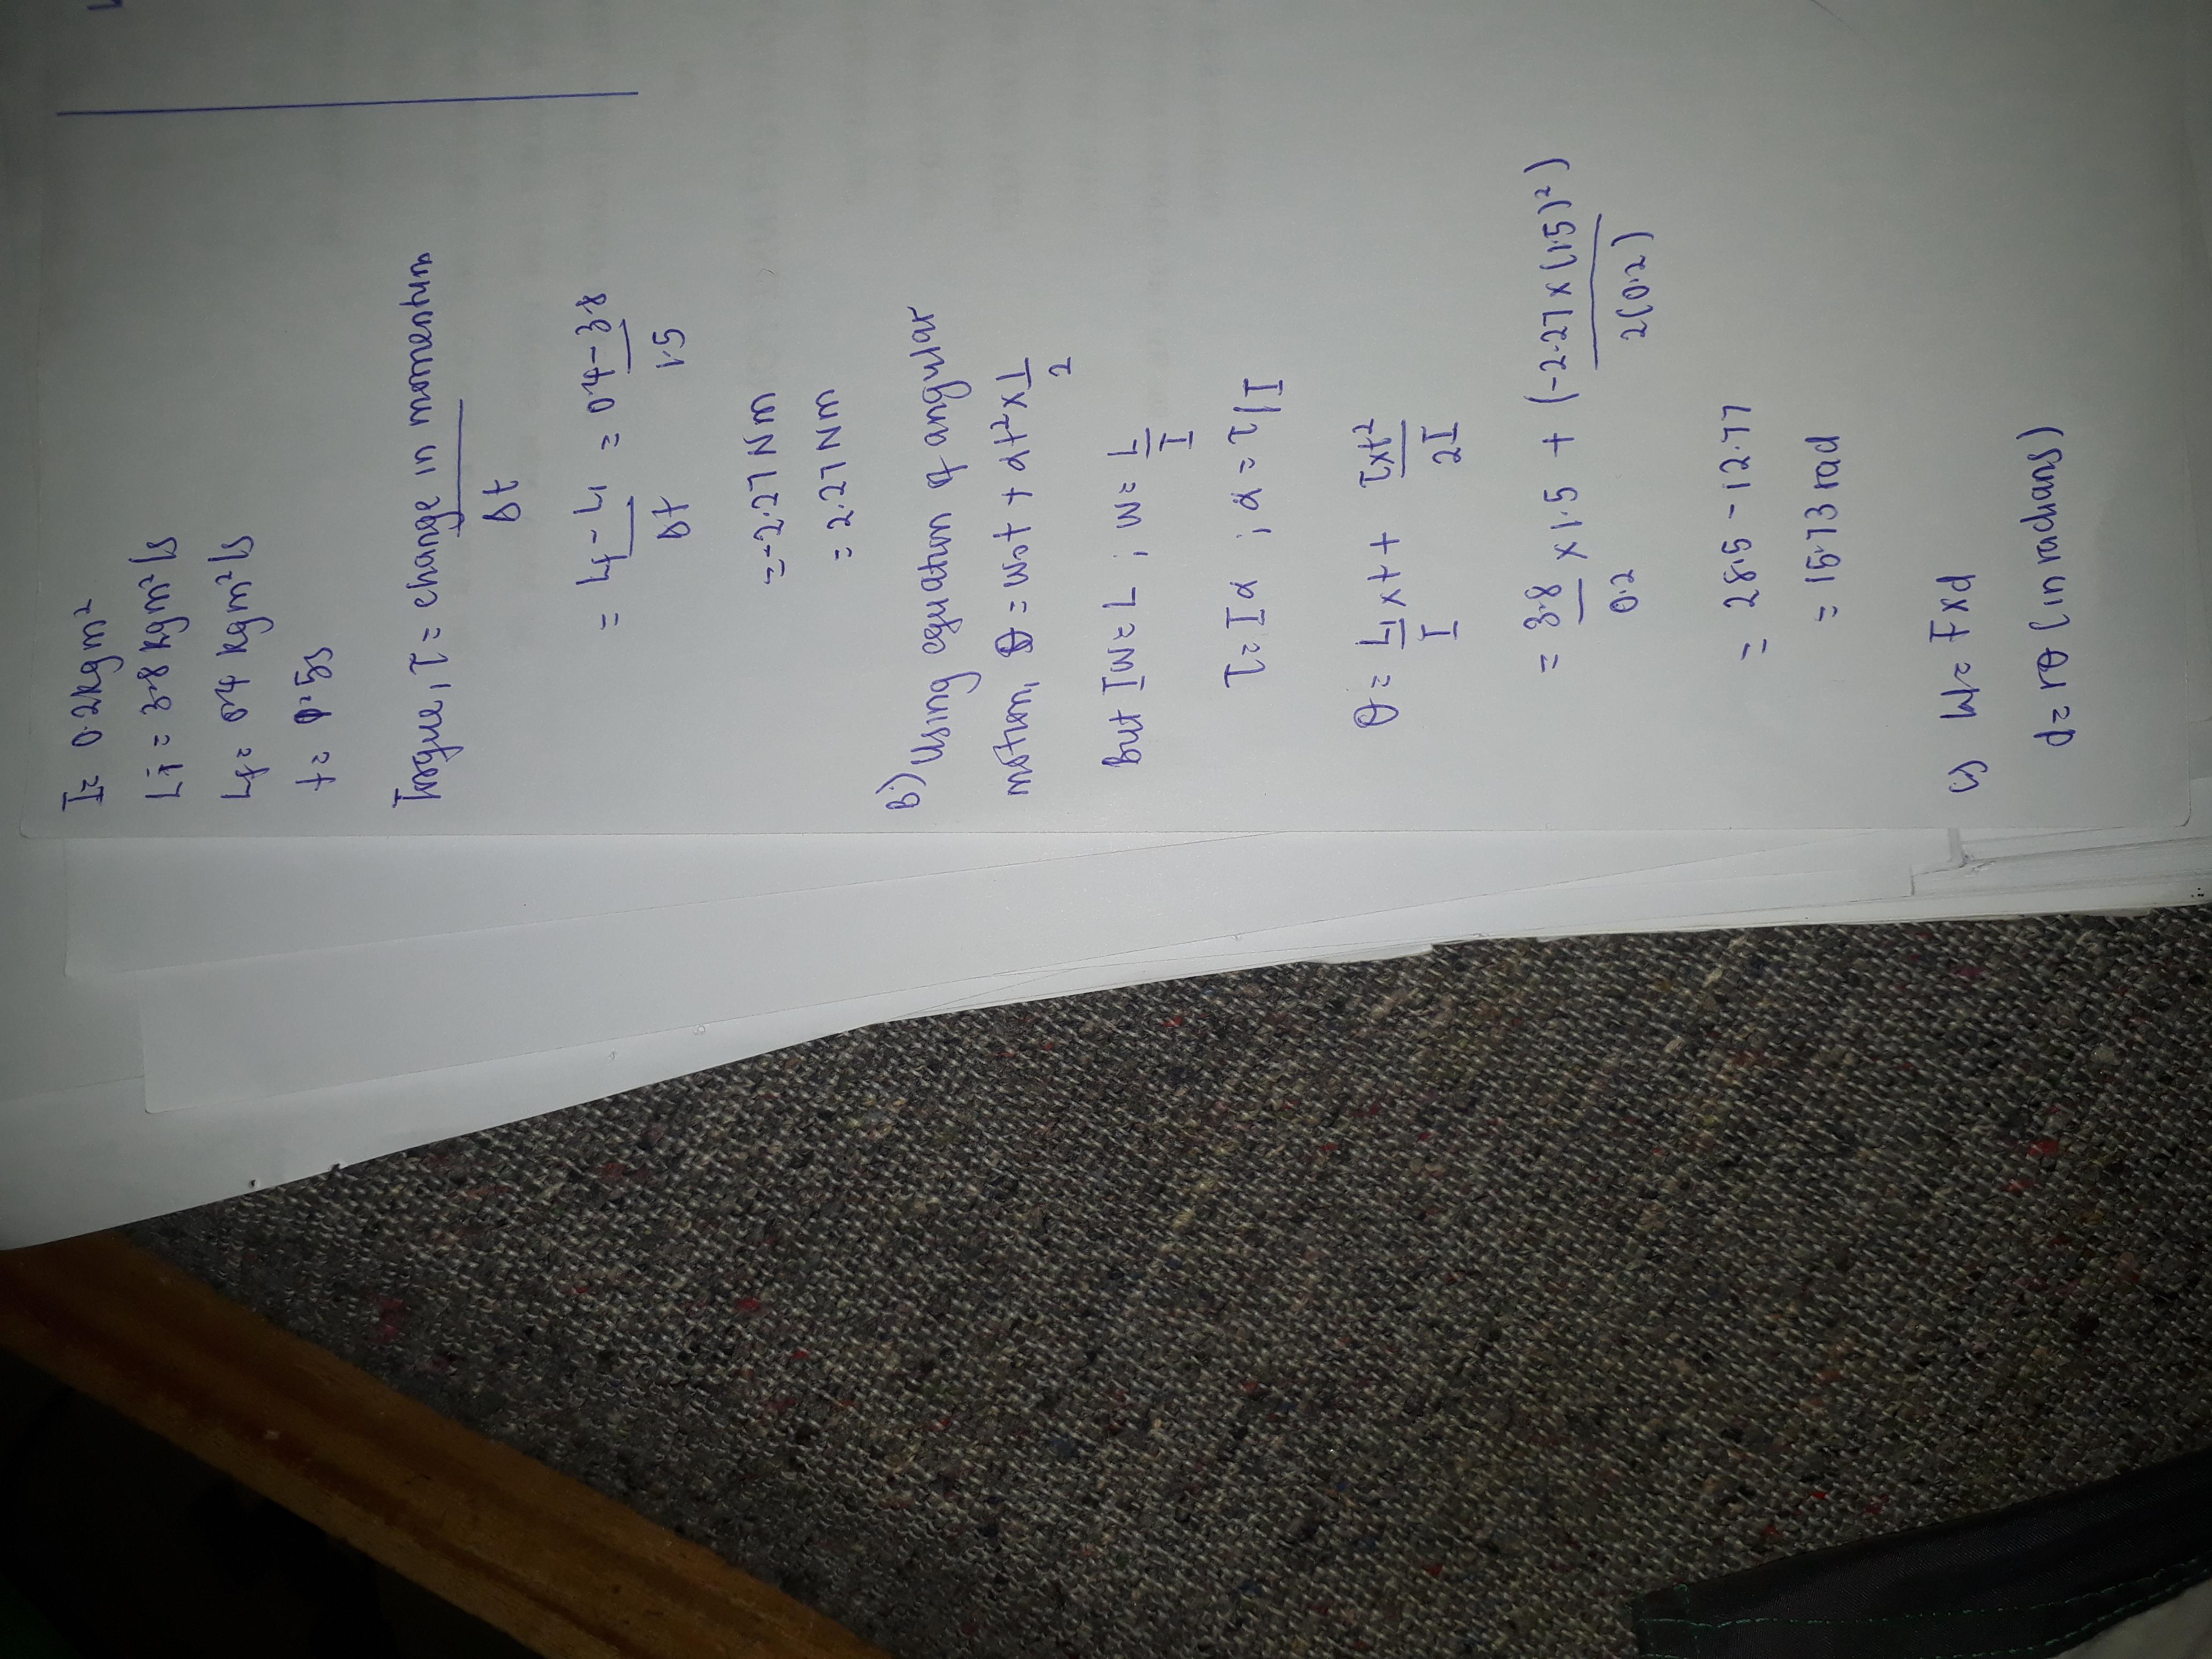 I = 0.2kgm²
Li = 3.8 kgm²/s
Lf = 0.4 kgm²/s
t = 0.5s
Torque, τ = change in momentum
Δt
= Lf - Li = 0.4 - 3.8
Δt 1.5
= -2.27 Nm
= 2.27 Nm
B) Using equation of angular
motion, θ = wot + αt² x 1
2
But Iw = L ; w = L
I
τ = Iα ; α = τ/I
θ = Li x t + τxt²
I 2I
= 3.8 x 1.5 + (-2.27 x (1.5)²)
0.2 2(0.2)
= 28.5 - 12.77
= 15.73 rad
c) W = F x d
d = rθ (in radians)